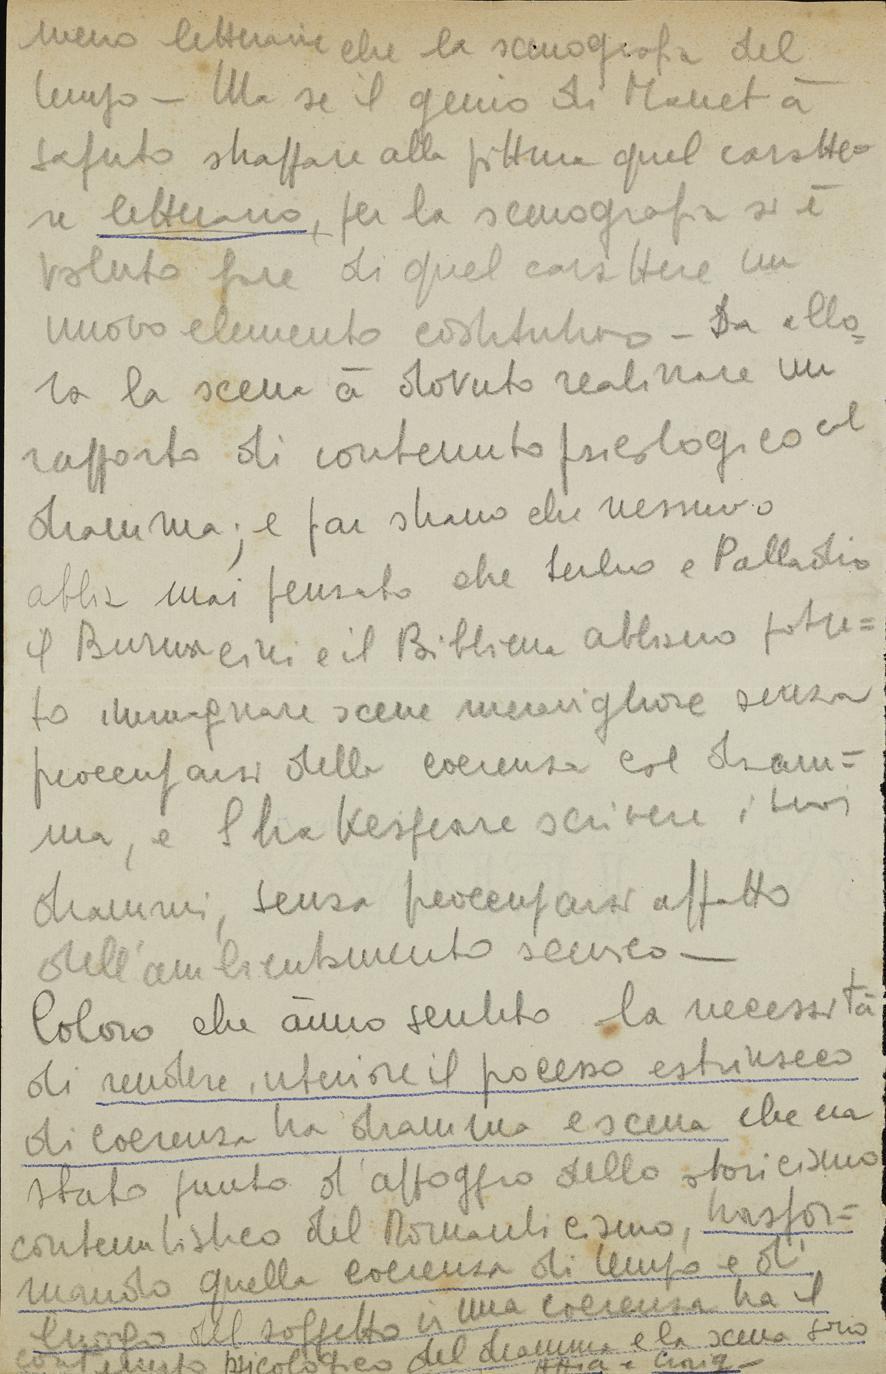 meno letterarie che la scenografia del
tempo — Ma se il genio di Manet à
saputo strappare alla pittura quel caratte
re letterario, per la scenografia si è
voluto fare di quel carattere un
nuovo elemento costitutivo — Da allo=
ra la scena à dovuto realizzare un
rapporto di contenuto psicologico col
dramma; e par strano che nessuno
abbia mai pensato che Serlio e Palladio
il Burnacini e il Bibbiena abbiano potu=
to immaginare scene meravigliose senza
preoccuparsi della coerenza col dram=
ma, e Shakespeare scrivere i suoi
drammi, senza preoccuparsi affatto
dell'ambientamento scenico —
Coloro che ànno sentito la necessità
di rendere interiore il pocesso estrinseco
di coerenza tra dramma e scena che era
stato punto d'appoggio dello storicismo
contenutistico del Romanticismo, trasfor=
mando quella coerenza di tempo e di
luogo del soggetto in una coerenza tra il
contenuto psicologico del dramma e la scena sono
Appia e Craig —